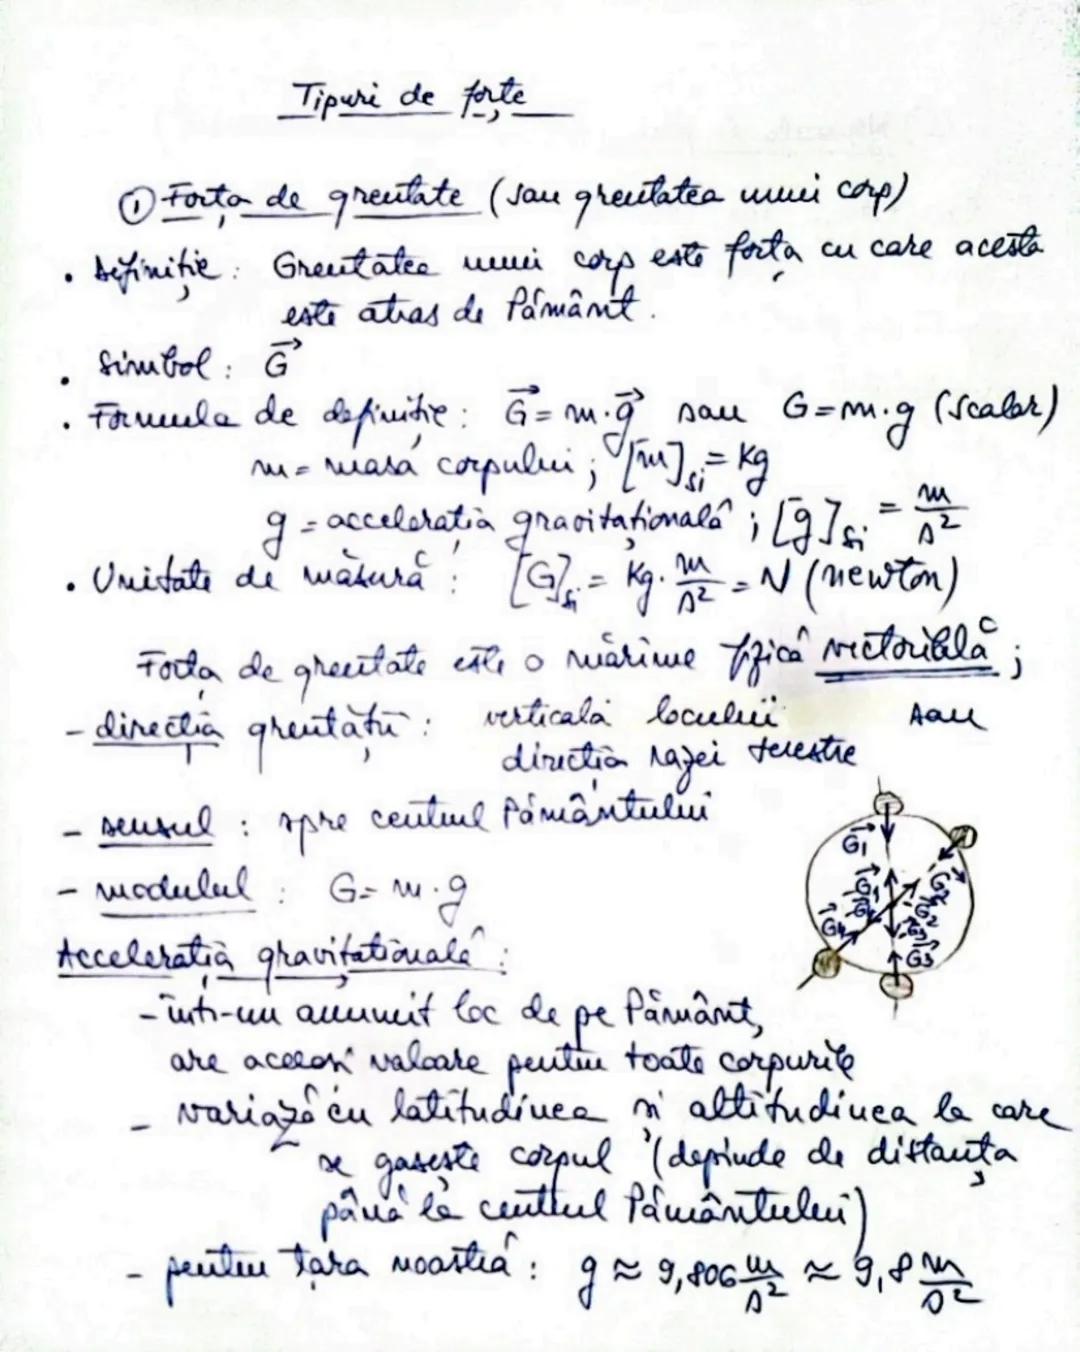 Tipuri de forțe
① Forța de greutate (sau greutatea unui corp)
• Definiție: Greutatea unui corp este forța cu care acesta
este atras de Pământ.
• Simbol: G⃗
• Formula de definiție: G⃗ = m·g⃗ sau G=m·g (scalar)
m = masa corpului; [m]si = kg
g = accelerația gravitațională; [g]si = m/s²
• Unitate de măsură: [G]si = kg·m/s² = N (newton)
Forța de greutate este o mărime fizică vectorială;
- direcția greutății: verticala locului sau
direcția razei terestre
- sensul: spre centrul Pământului
- modulul: G = m·g
G⃗1
G⃗2
G⃗1 G⃗2
G⃗4 G⃗3
G⃗3
Accelerația gravitațională:
- într-un anumit loc de pe Pământ,
are aceeași valoare pentru toate corpurile
- variază cu latitudinea și altitudinea la care
se găsește corpul (depinde de distanța
până la centrul Pământului)
- pentru țara noastră: g ≈ 9,806 m/s² ≈ 9,8 m/s²